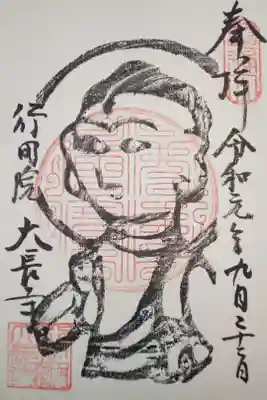 奉拝 令和元年九月二十二日
行田院
大長寺